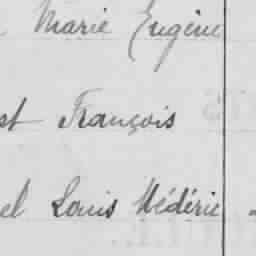 Marie Eugène
st François
el Louis Médéric